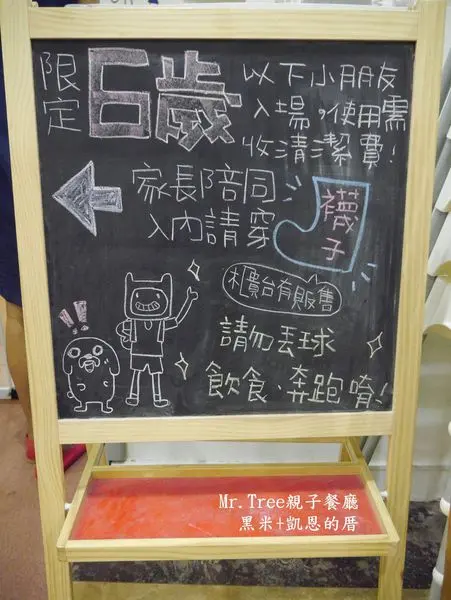 限定6歲以下小朋友
入場,使用需
收清潔費!
家長陪同
入內請穿襪子
櫃台有販售
請勿丟球
飲食、奔跑唷!
Mr.Tree親子餐廳
黑米+凱恩的厝